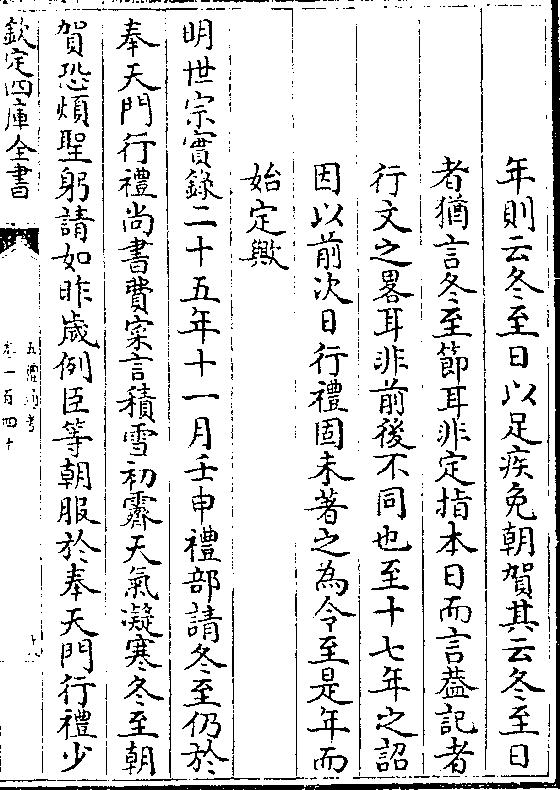 年則云冬至日以足疾免朝賀其云冬至日
者猶言冬至節耳非定指本日而言葢記者
行文之畧耳非前後不同也至十七年之詔
因以前次日行禮固未著之為令至是年而
始定歟
明世宗實錄二十五年十一月壬申禮部請冬至仍於
奉天門行禮尚書費寀言積雪初霽天氣凝寒冬至朝
賀恐煩聖躬請如昨歲例臣等朝服於奉天門行禮少
欽定四庫全書
五禮通考
卷一百四十